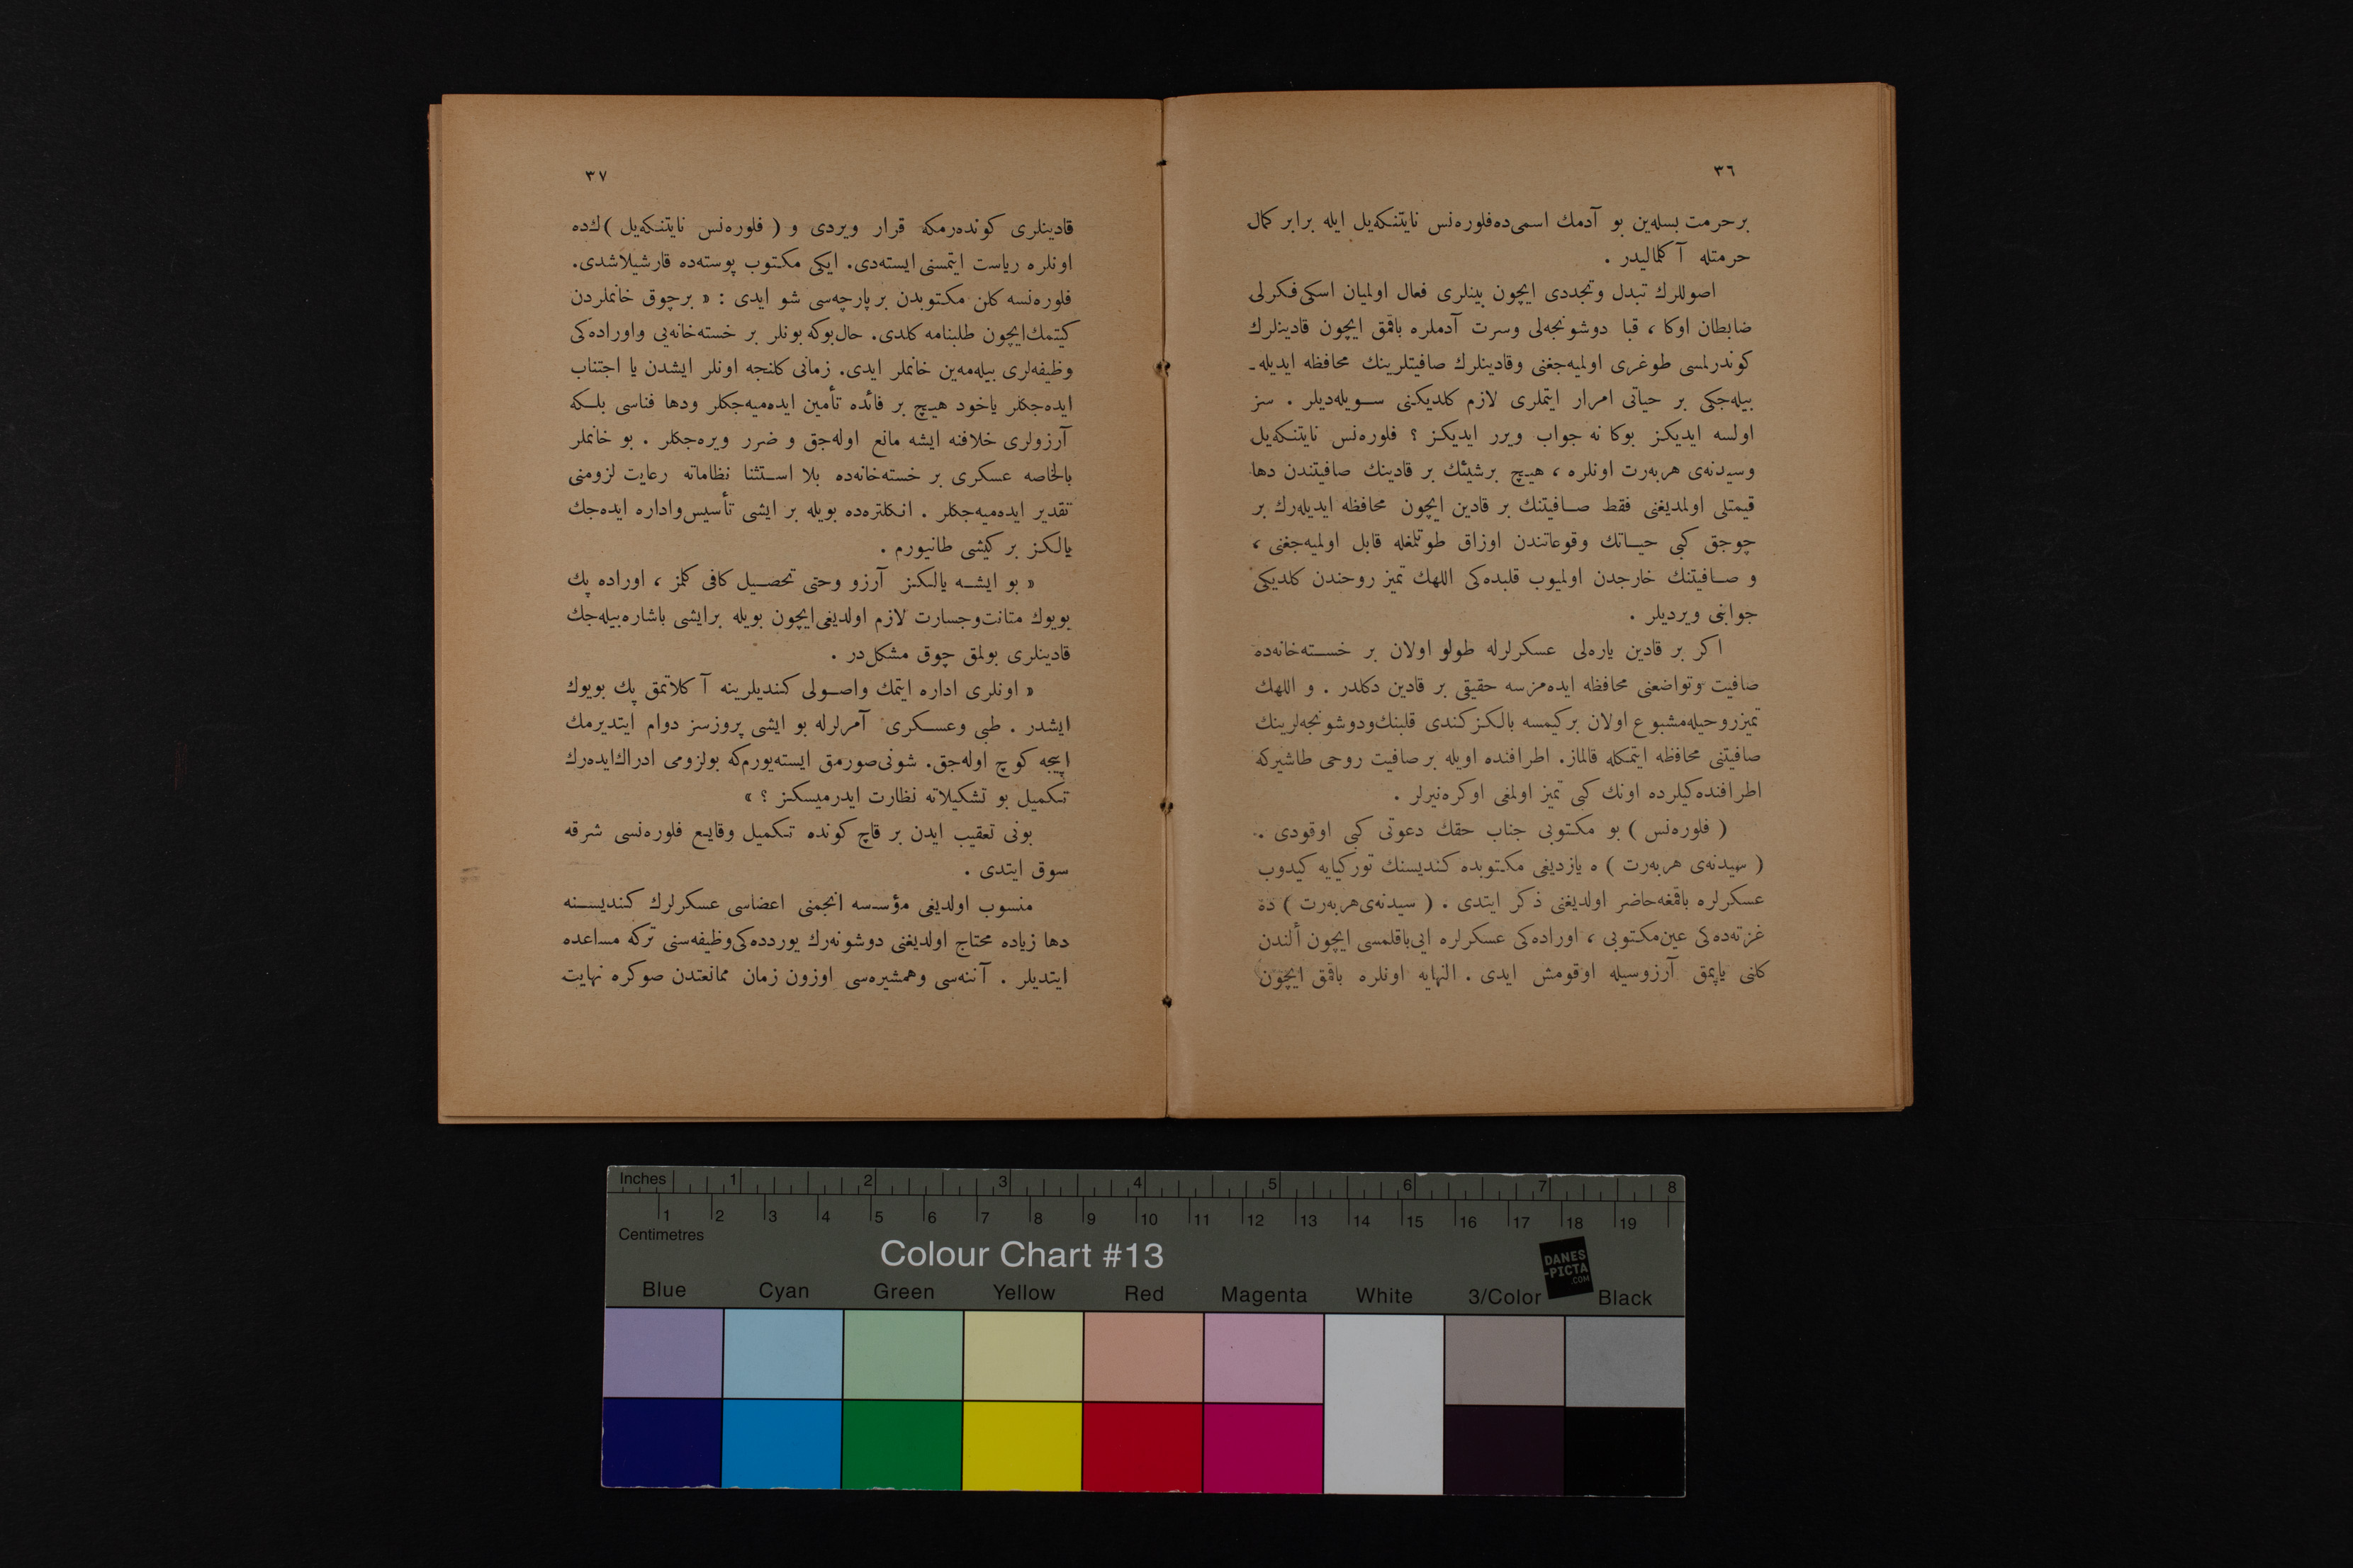 ٣٦
برحرمت بسله‌ین بو آدمك اسمی‌ده‌فلوره‌نس نایتنكه‌یل ایله برابر كمال
حرمتله آكمالیدر .
اصوللرك تبدل وتجددی ایچون بینلری فعال اولمیان اسكی‌فكرلی
ضابطان اوكا ، قبا دوشونجه‌لی وسرت آدملره باقمق ایچون قادینلرك
كوندرلمسی طوغری اولمیه‌جغنی وقادینلرك صافیتلرینك محافظه ایدیله‌ـ
بیله‌جكی بر حیاتی امرار ایتملری لازم كلدیكنی سـویله‌دیلر . سز
اولسه ایدیكز بوكا نه جواب ویرر ایدیكز ؟ فلوره‌نس نایتنكه‌یل
وسیدنه‌ی هربه‌رت اونلره ، هیچ برشیئك بر قادینك صافیتندن دها
قیمتلی اولمدیغنی فقط صـافیتنك بر قادین ایچون محافظه ایدیله‌رك بر
چوجق كبی حیـاتك وقوعاتندن اوزاق طوتلمغله قابل اولمیه‌جغنی ،
و صـافیتنك خارجدن اولمیوب قلبده‌كی اللهك تمیز روحندن كلدیكی
جوابنی ویردیلر .
اكر بر قادین یاره‌لی عسكرلرله طولو اولان بر خسـته‌خانه‌ده
صافیت وتواضعنی محافظه ایده‌مزسه حقیقی بر قادین دكلدر . و اللهك
تمیزروحیله‌مشبوع اولان بركیمسه یالكزكندی قلبنك‌ودوشونجه‌لرینك
صافیتنی محافظه ایتمكله قالماز. اطرافنده اویله بر صافیت روحی طاشیركه
اطرافنده‌كیلرده اونك كبی تمیز اولمغی اوكره‌نیرلر .
( فلوره‌نس ) بو مكتوبی جناب حقك دعوتی كبی اوقودی .
( سیدنه‌ی هربه‌رت ) ه یازدیغی مكتوبده كندیسنك توركیایه كیدوب
عسكرلره باقمغه‌حاضر اولدیغنی ذكر ایتدی . ( سیدنه‌ی‌هربه‌رت ) ده
غزته‌ده‌كی عین‌مكتوبی ، اوراده‌كی عسكرلره ایی‌باقلمسی ایچون ألندن
كلنی یاپمق آرزوسیله اوقومش ایدی . النهایه اونلره باقمق ایچون
٣٧
قادینلری كونده‌رمكه قرار ویردی و ( فلوره‌نس نایتنكه‌یل )ك‌ده
اونلره ریاست ایتمسنی ایسته‌دی. ایكی مكتوب پوسته‌ده قارشیلاشدی.
فلوره‌نسه كلن مكتوبدن بر پارچه‌سی شو ایدی : « برچوق خانملردن
كیتمك‌ایچون طلبنامه كلدی. حال‌بوكه بونلر بر خسته‌خانه‌یی واوراده‌كی
وظیفه‌لری بیلمه‌ین خانملر ایدی. زمانی كلنجه اونلر ایشدن یا اجتناب
ایده‌جكلر یاخود هیچ بر فائده تأمین ایده‌میه‌جكلر ودها فناسی بلـكه
آرزولری خلافنه ایشه مانع اوله‌جق و ضرر ویره‌جكلر . بو خانملر
بالخاصه عسكری بر خسته‌خانه‌ده بلا اسـتثنا نظاماته رعایت لزومنی
تقدیر ایده‌میه‌جكلر . انكلتره‌ده بویله بر ایشی تأسیس‌واداره ایده‌جك
یالكز بر كیشی طانیورم .
« بو ایشـه یالكز آرزو وحتی تحصـیل كافی كلمز ، اوراده پك
بویوك متانت‌وجسارت لازم اولدیغی‌ایچون بویله برایشی باشاره‌بیله‌جك
قادینلری بولمق چوق مشكل‌در .
« اونلری اداره ایتمك واصـولی كندیلرینه آكلاتمق پك بویوك
ایشدر . طبی وعسـكری آمرلرله بو ایشی پروزسز دوام ایتدیرمك
اییجه كوچ اوله‌جق. شونی‌صورمق ایسته‌یورم‌كه بولزومی ادراك‌ایده‌رك
تكمیل بو تشكیلاته نظارت ایدرمیسكز ؟ »
بونی تعقیب ایدن بر قاچ كونده تكمیل وقایع فلوره‌نسی شرقه
سوق ایتدی .
منسوب اولدیغی مؤسسه انجمنی اعضاسی عسكرلرك كندیسـنه
دها زیاده محتاج اولدیغنی دوشونه‌رك یورددده‌كی‌وظیفه‌سنی تركه مساعده
ایتدیلر . آننه‌سی وهمشیره‌سی اوزون زمان ممانعتدن صوكره نهایت
Inches 1 2 3 4 5 6 7 8
1 2 3 4 5 6 7 8 9 10 11 12 13 14 15 16 17 18 19
Centimetres
Colour Chart #13
DANES
-PICTA
.COM
Blue Cyan Green Yellow Red Magenta White 3/Color Black